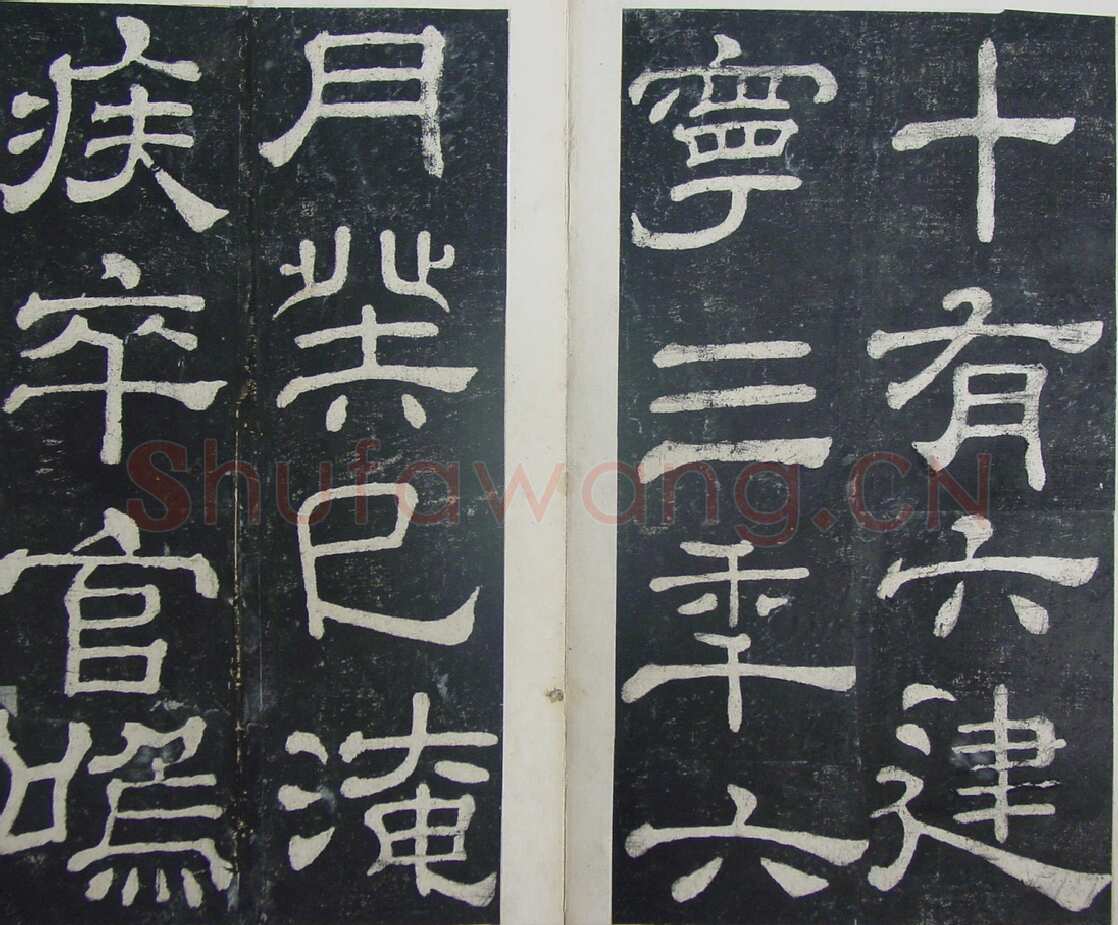 十有六建
寧三年六
月癸巳淹
疾卒官嗚
Shufawang.CN